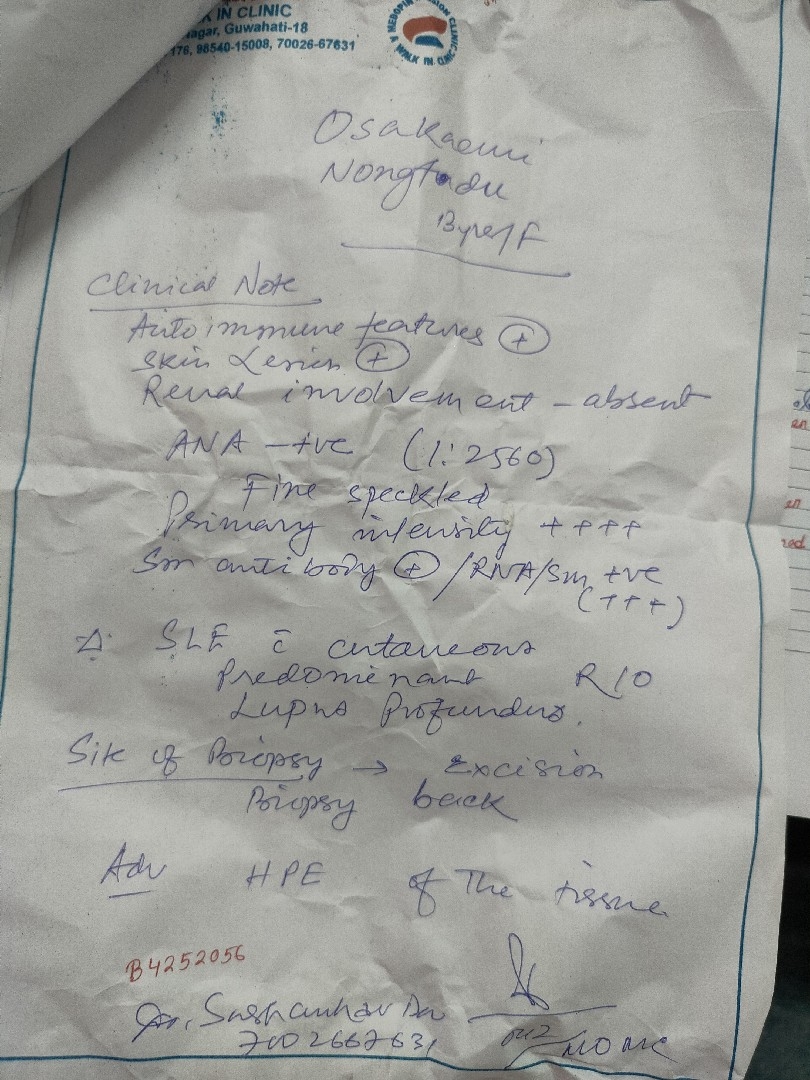 IN CLINIC
agar, Guwahati-18
176, 98540-15008, 70026-67631
WALK IN CLINIC
Osakaemi
Nongtadu
/F
Clinical Note
Autoimmune features (+)
Skin Lesion (+)
Renal involvement - absent
ANA -+ve (1:2560)
Fine speckled
Primary intensity ++++
Sm antibody (+) /RNA/Sm +ve
(+++)
Δ: SLE c̄ cutaneous
Predominant R/O
Lupus Profundus.
Site of Biopsy → Excision
Biopsy back
Adv HPE of The tissue
B4252056
Dr. Sashankar Da
7002667631